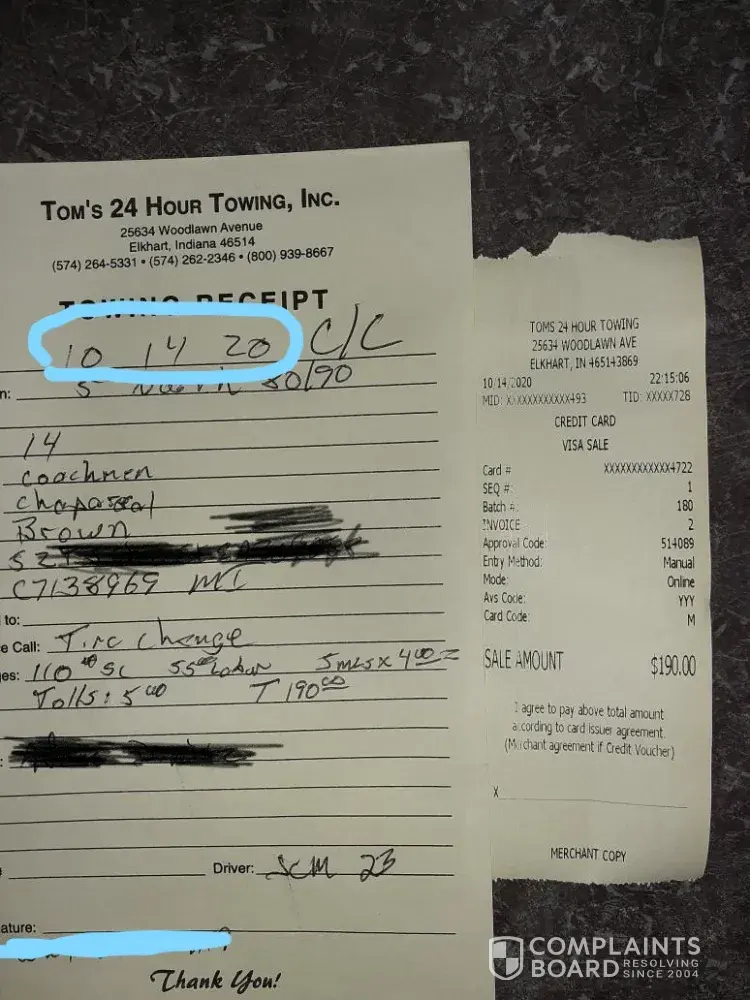 TOM'S 24 HOUR TOWING, INC.
25634 Woodlawn Avenue
Elkhart, Indiana 46514
(574) 264-5331 • (574) 262-2346 • (800) 939-8667
TOWING RECEIPT
10 14 20 C/C
n: 80/90
14
coachmen
Brown
C7138969 MI
to:
e Call: Tire change
es: 110 00 SC 55 00 Labor 5 mls x 4 00 =
Tolls: 5 00 T 190 00
:
Driver: SCM 23
ature:
Thank You!
TOMS 24 HOUR TOWING
25634 WOODLAWN AVE
ELKHART, IN 465143869
10/14/2020 22:15:06
MID: XXXXXXXXXXXX493 TID: XXXXX728
CREDIT CARD
VISA SALE
Card # XXXXXXXXXXXX4722
SEQ #: 1
Batch #: 180
INVOICE 2
Approval Code: 514089
Entry Method: Manual
Mode: Online
Avs Code: YYY
Card Code: M
SALE AMOUNT $190.00
I agree to pay above total amount
according to card issuer agreement.
(Merchant agreement if Credit Voucher)
X
MERCHANT COPY
COMPLAINTS
BOARD RESOLVING SINCE 2004